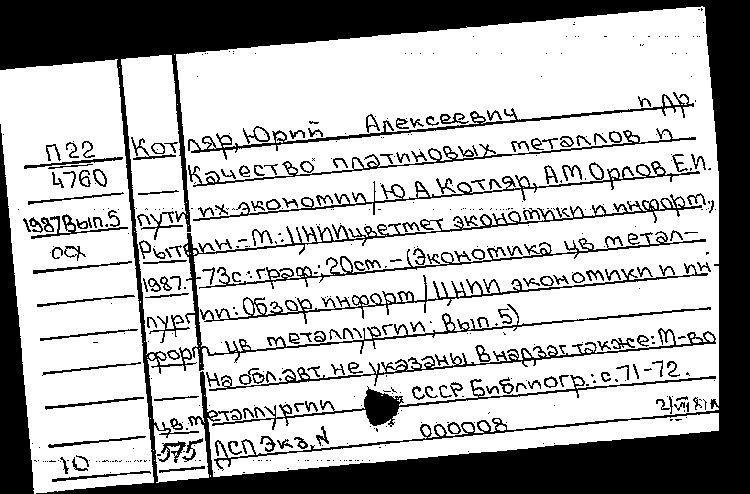 П22 Котляр, Юрий Алексеевич и др
4760 Качество платиновых металлов и
1987 Вып.5 пути их экономии/Ю.А.Котляр, А.М.Орлов, Е.И.
осх Рытвин.-М.: ЦНИИцветмет экономики и информ.,
1987.-73с.: граф.; 20см.-(Экономика цв метал-
лургии: Обзор. информ/ЦНИИ экономики и ин-
форм цв металлургии; Вып.5)
На обл. авт. не указаны. В надзаг. также: М-во
цв. металлургии СССР. Библиогр.: с. 71-72.
10 575 ДСП. Экз. N 000008